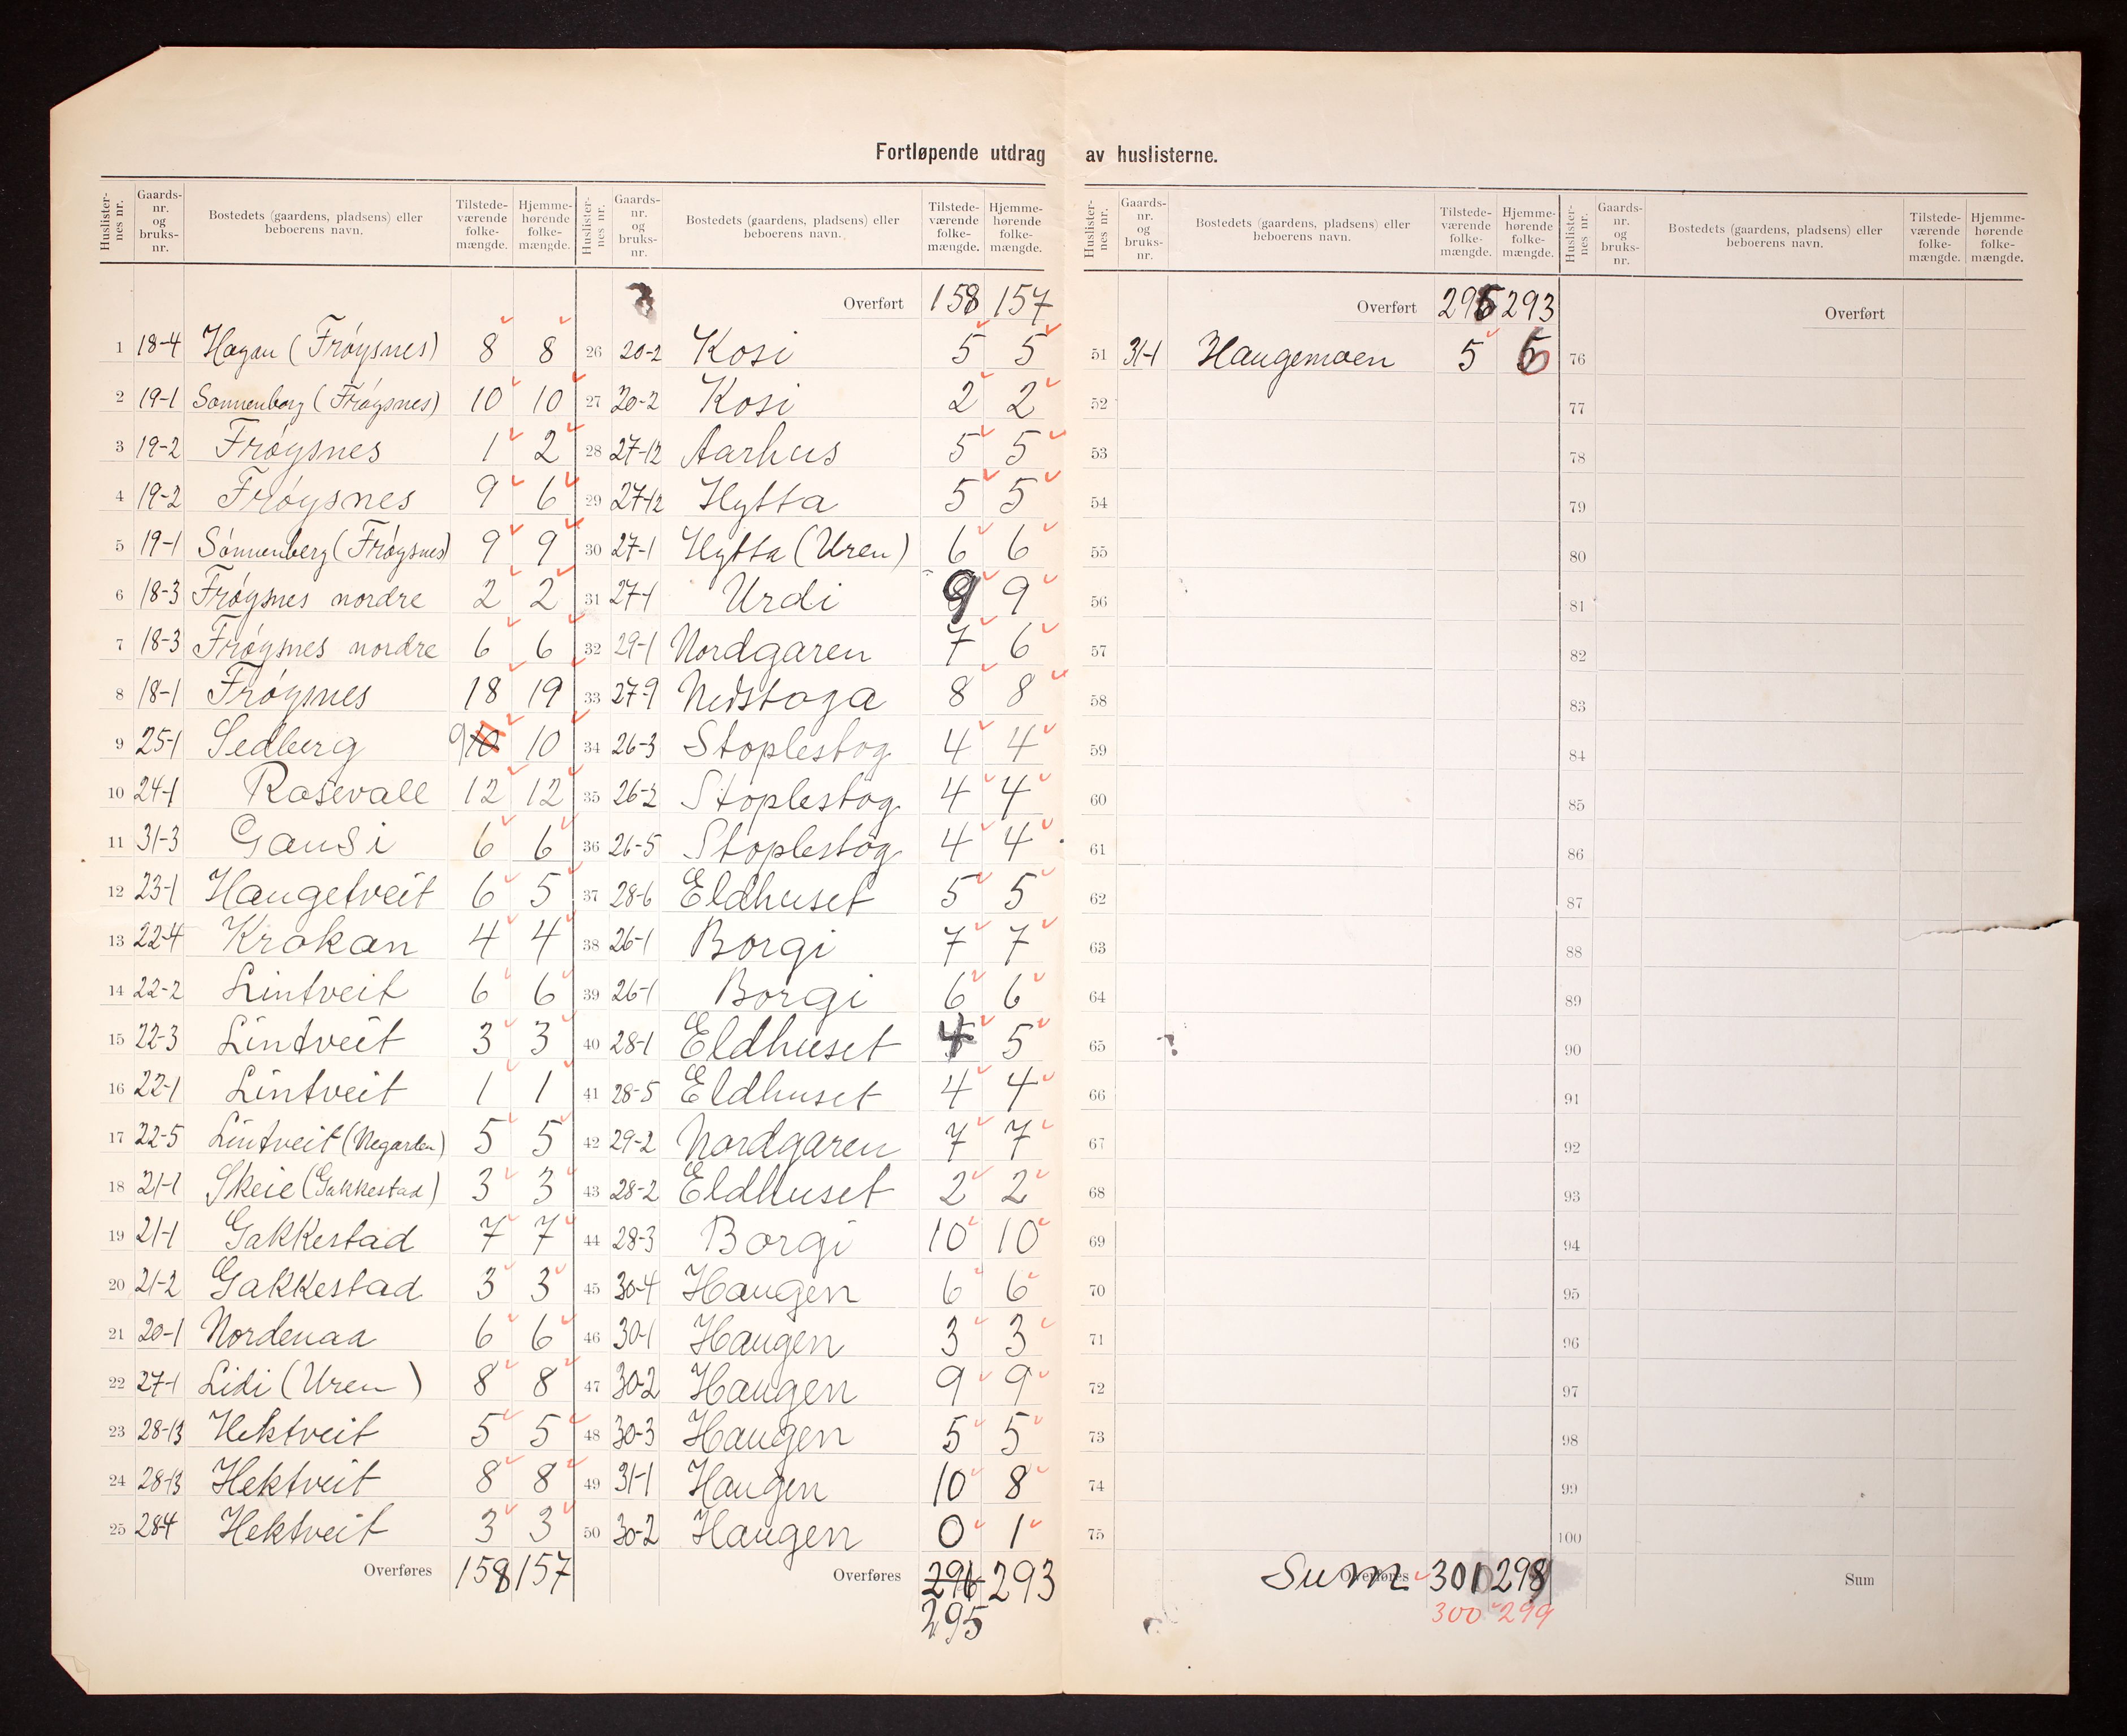 Fortløpende utdrag av huslisterne.
Huslisternes nr. Gaards-nr. og bruks-nr. Bostedets (gaardens, pladsens) eller beboerens navn. Tilstede-værende folke-mængde. Hjemme-hørende folke-mængde.
1 18-4 Hagan (Frøysnes) 8 8
2 19-1 Sønnenberg (Frøysnes) 10 10
3 19-2 Frøysnes 1 2
4 19-2 Frøysnes 9 6
5 19-1 Sønnenberg (Frøysnes) 9 9
6 18-3 Frøysnes nordre 2 2
7 18-3 Frøysnes nordre 6 6
8 18-1 Frøysnes 18 19
9 25-1 Sedberg 9 10 10
10 24-1 Rosevall 12 12
11 31-3 Gausi 6 6
12 23-1 Haugetveit 6 5
13 22-4 Krokan 4 4
14 22-2 Lintveit 6 6
15 22-3 Lintveit 3 3
16 22-1 Lintveit 1 1
17 22-5 Lintveit (Negarden) 5 5
18 21-1 Skeie (Gakkestad) 3 3
19 21-1 Gakkestad 7 7
20 21-2 Gakkestad 3 3
21 20-1 Nordenaa 6 6
22 27-1 Lidi (Uren) 8 8
23 28-13 Hektveit 5 5
24 28-13 Hektveit 8 8
25 28-4 Hektveit 3 3
Overføres 158 157
Huslisternes nr. Gaards-nr. og bruks-nr. Bostedets (gaardens, pladsens) eller beboerens navn. Tilstede-værende folke-mængde. Hjemme-hørende folke-mængde.
Overført 158 157
26 20-2 Kosi 5 5
27 20-2 Kosi 2 2
28 27-12 Aarhus 5 5
29 27-12 Hytta 5 5
30 27-1 Hytta (Uren) 6 6
31 27-1 Urdi 9 9
32 29-1 Nordgaren 7 6
33 27-9 Nistoga 8 8
34 26-3 Stoplestog 4 4
35 26-2 Stoplestog 4 4
36 26-5 Stoplestog 4 4
37 28-6 Eldhuset 5 5
38 26-1 Borgi 7 7
39 26-1 Borgi 6 6
40 28-1 Eldhuset 4 5
41 28-5 Eldhuset 4 4
42 29-2 Nordgaren 7 7
43 28-2 Eldhuset 2 2
44 28-3 Borgi 10 10
45 30-4 Haugen 6 6
46 30-1 Haugen 3 3
47 30-2 Haugen 9 9
48 30-3 Haugen 5 5
49 31-1 Haugen 10 8
50 30-2 Haugen 0 1
Overføres 296 293
295
Huslisternes nr. Gaards-nr. og bruks-nr. Bostedets (gaardens, pladsens) eller beboerens navn. Tilstede-værende folke-mængde. Hjemme-hørende folke-mængde.
Overført 295 293
51 31-1 Haugemoen 5 6
52
53
54
55
56
57
58
59
60
61
62
63
64
65
66
67
68
69
70
71
72
73
74
75
Overføres Sum 301 298
300 299
Huslisternes nr. Gaards-nr. og bruks-nr. Bostedets (gaardens, pladsens) eller beboerens navn. Tilstede-værende folke-mængde. Hjemme-hørende folke-mængde.
Overført
76
77
78
79
80
81
82
83
84
85
86
87
88
89
90
91
92
93
94
95
96
97
98
99
100
Sum